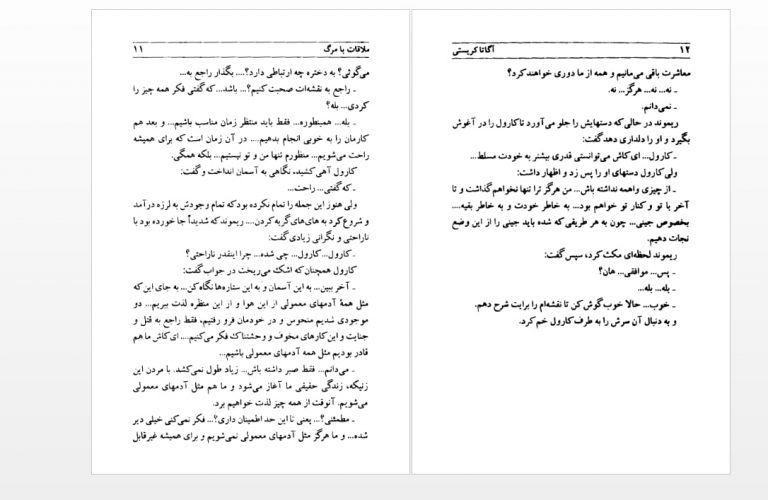 ملاقات با مرگ ۱۱
می‌گوئی؟ به دختره چه ارتباطی دارد؟... بگذار راجع به...
ـ راجع به نقشه‌ات صحبت کنیم؟... باشد...که گفتی فکر همه چیز را
کردی... بله؟
ـ بله... همینطوره... فقط باید منتظر زمان مناسب باشیم... و بعد هم
کارمان را به خوبی انجام بدهیم.... در آن زمان است که برای همیشه
راحت می‌شویم... منظورم تنها من و تو نیستیم... بلکه همگی.
کارول آهی کشید، نگاهی به آسمان انداخت و گفت:
ـ که گفتی... راحت...
ولی هنوز این جمله را تمام نکرده بود که تمام وجودش به لرزه درآمد
و شروع کرد به های‌های گریه کردن.... ریموند که شدیداً جا خورده بود با
ناراحتی و نگرانی زیادی گفت:
ـ کارول...کارول... چی شده... چرا اینقدر ناراحتی؟
کارول همچنان که اشک می‌ریخت در جواب گفت:
ـ آخر ببین... به این آسمان و به این ستاره‌ها نگاه کن... به جای این که
مثل همهٔ آدمهای معمولی از این هوا و از این منظره لذت ببریم... دو
موجودی شدیم منحوس و در خودمان فرو رفتیم، فقط راجع به قتل و
جنایت و این کارهای مخوف و وحشتناک فکر می‌کنیم.... ای‌کاش ما هم
قادر بودیم مثل همه آدمهای معمولی باشیم...
ـ می‌دانم... فقط صبر داشته باش... زیاد طول نمی‌کشد. با مردن این
زنیکه، زندگی حقیقی ما آغاز می‌شود و ما هم مثل آدمهای معمولی
می‌شویم. آنوقت از همه چیز لذت خواهیم برد.
ـ مطمئنی؟... یعنی تا این حد اطمینان داری؟... فکر نمی‌کنی خیلی دیر
شده... و ما هرگز مثل آدمهای معمولی نمی‌شویم و برای همیشه غیرقابل
۱۲ آگاتا کریستی
معاشرت باقی می‌مانیم و همه از ما دوری خواهند کرد؟
ـ نه... نه... هرگز... نه.
ـ نمی‌دانم.
ریموند در حالی که دستهایش را جلو می‌آورد تا کارول را در آغوش
بگیرد و او را دلداری دهد گفت:
ـ کارول... ای کاش می‌توانستی قدری بیشتر به خودت مسلط...
ولی کارول دستهای او را پس زد و اظهار داشت:
ـ از چیزی واهمه نداشته باش... من هرگز ترا تنها نخواهم گذاشت و تا
آخر با تو و کنار تو خواهم بود... به خاطر خودت و به خاطر بقیه....
بخصوص جینی... چون به هر طریقی که شده باید جینی را از این وضع
نجات دهیم.
ریموند لحظه‌ای مکث کرد، سپس گفت:
ـ پس... موافقی... هان؟
ـ بله... بله.
ـ خوب... حالا خوب گوش کن تا نقشه‌ام را برایت شرح دهم.
و به دنبال آن سرش را به طرف کارول خم کرد.